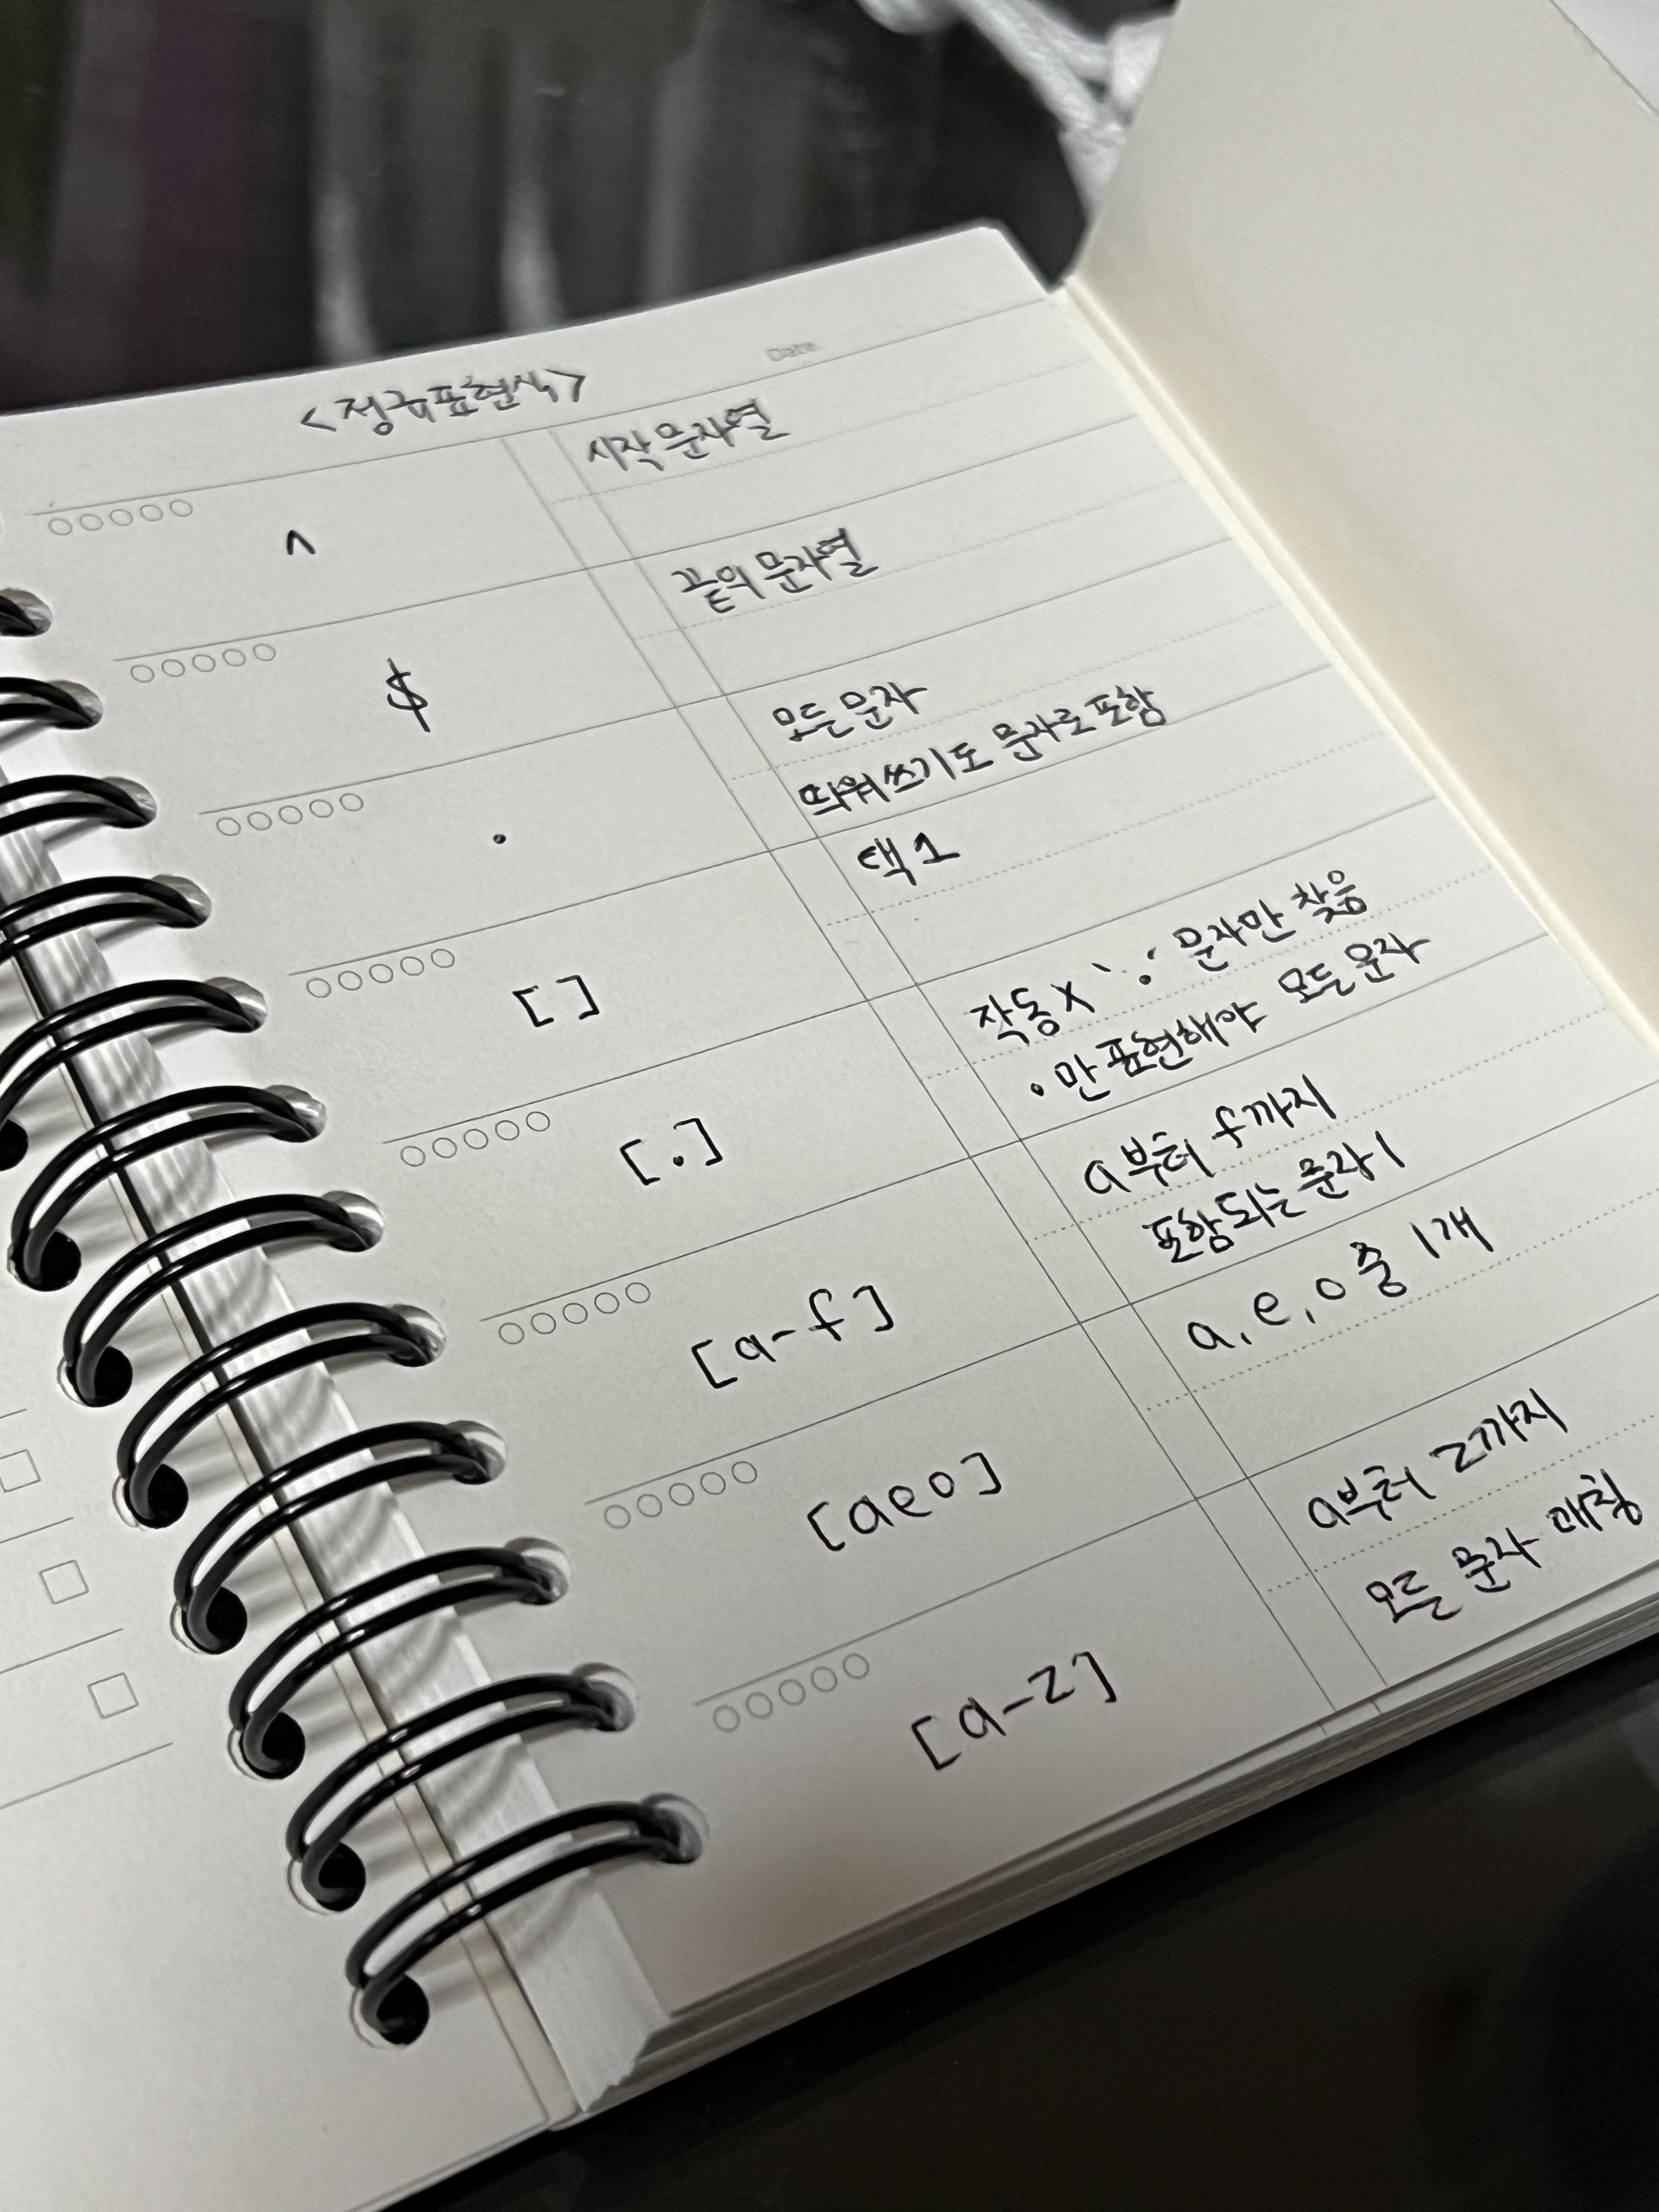 <정규표현식>
Date.
^
시작 문자열
$
끝의 문자열
.
모든 문자
띄워쓰기도 문자로 포함
[ ]
택 1
[.]
작동 X '.' 문자만 찾음
. 만 표현해야 모든 문자
[a-f]
a부터 f까지
포함되는 문자 1
[aeo]
a, e, o 중 1개
[a-z]
a부터 z까지
모든 문자 매칭